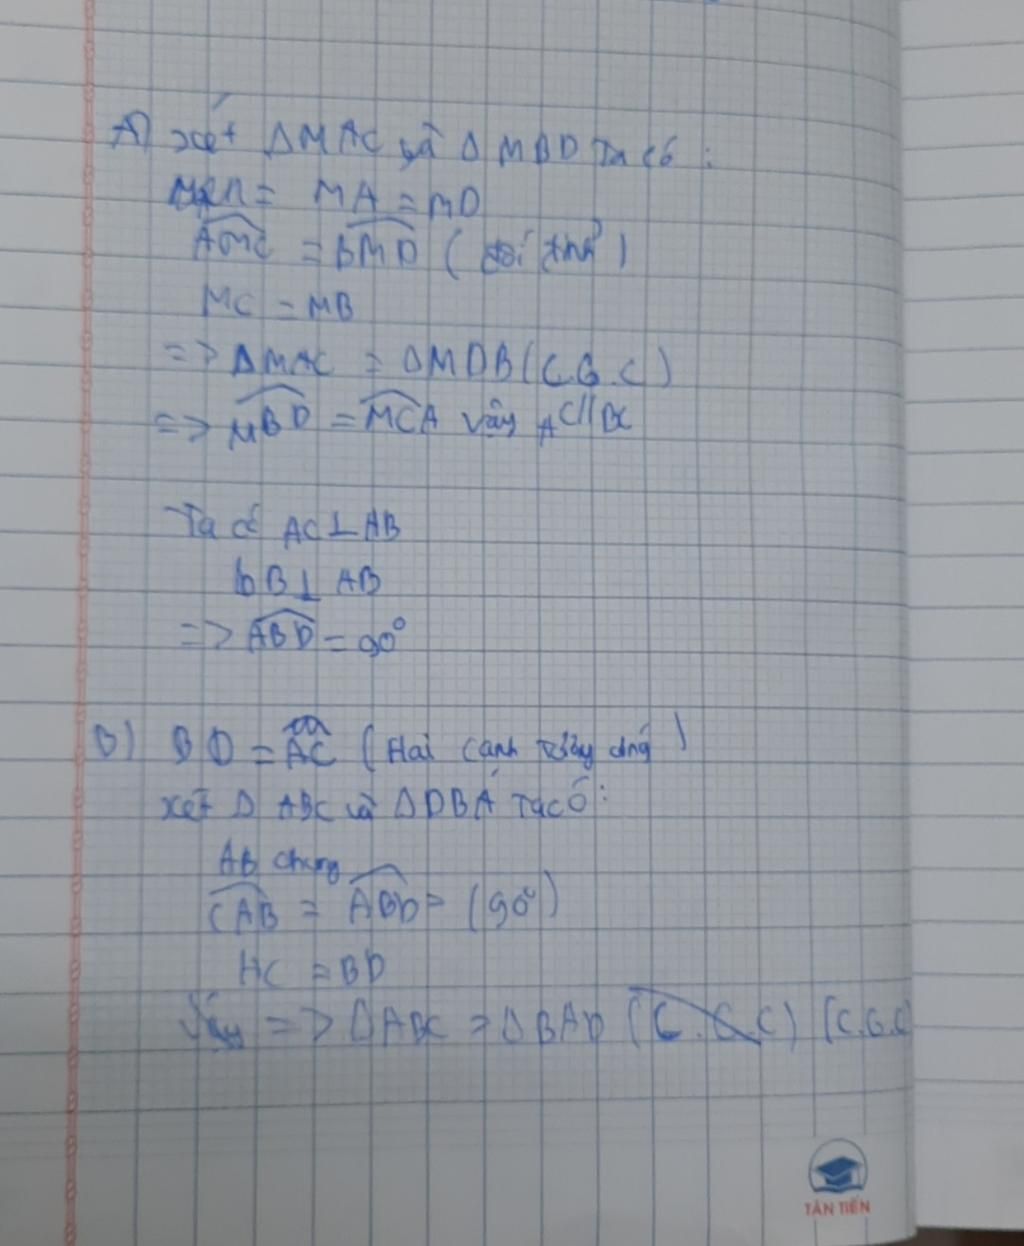 A) xét ΔMAC và ΔMBD Ta có :
MA = MD
AMC = BMD ( đối đỉnh )
MC = MB
=> ΔMAC = ΔMDB (C.G.C)
=> MBD = MCA vậy AC//
Ta có AC⊥AB
bB⊥ AB
=> ABD = 90°
B) BD = AC (Hai cạnh tương ứng )
xét Δ ABC và ΔDBA Ta có :
AB chung
CAB = ABD = (90°)
AC = BD
Vậy => ΔABC = ΔBAD (C.G.C) (C.G.C
TÂN TIẾN